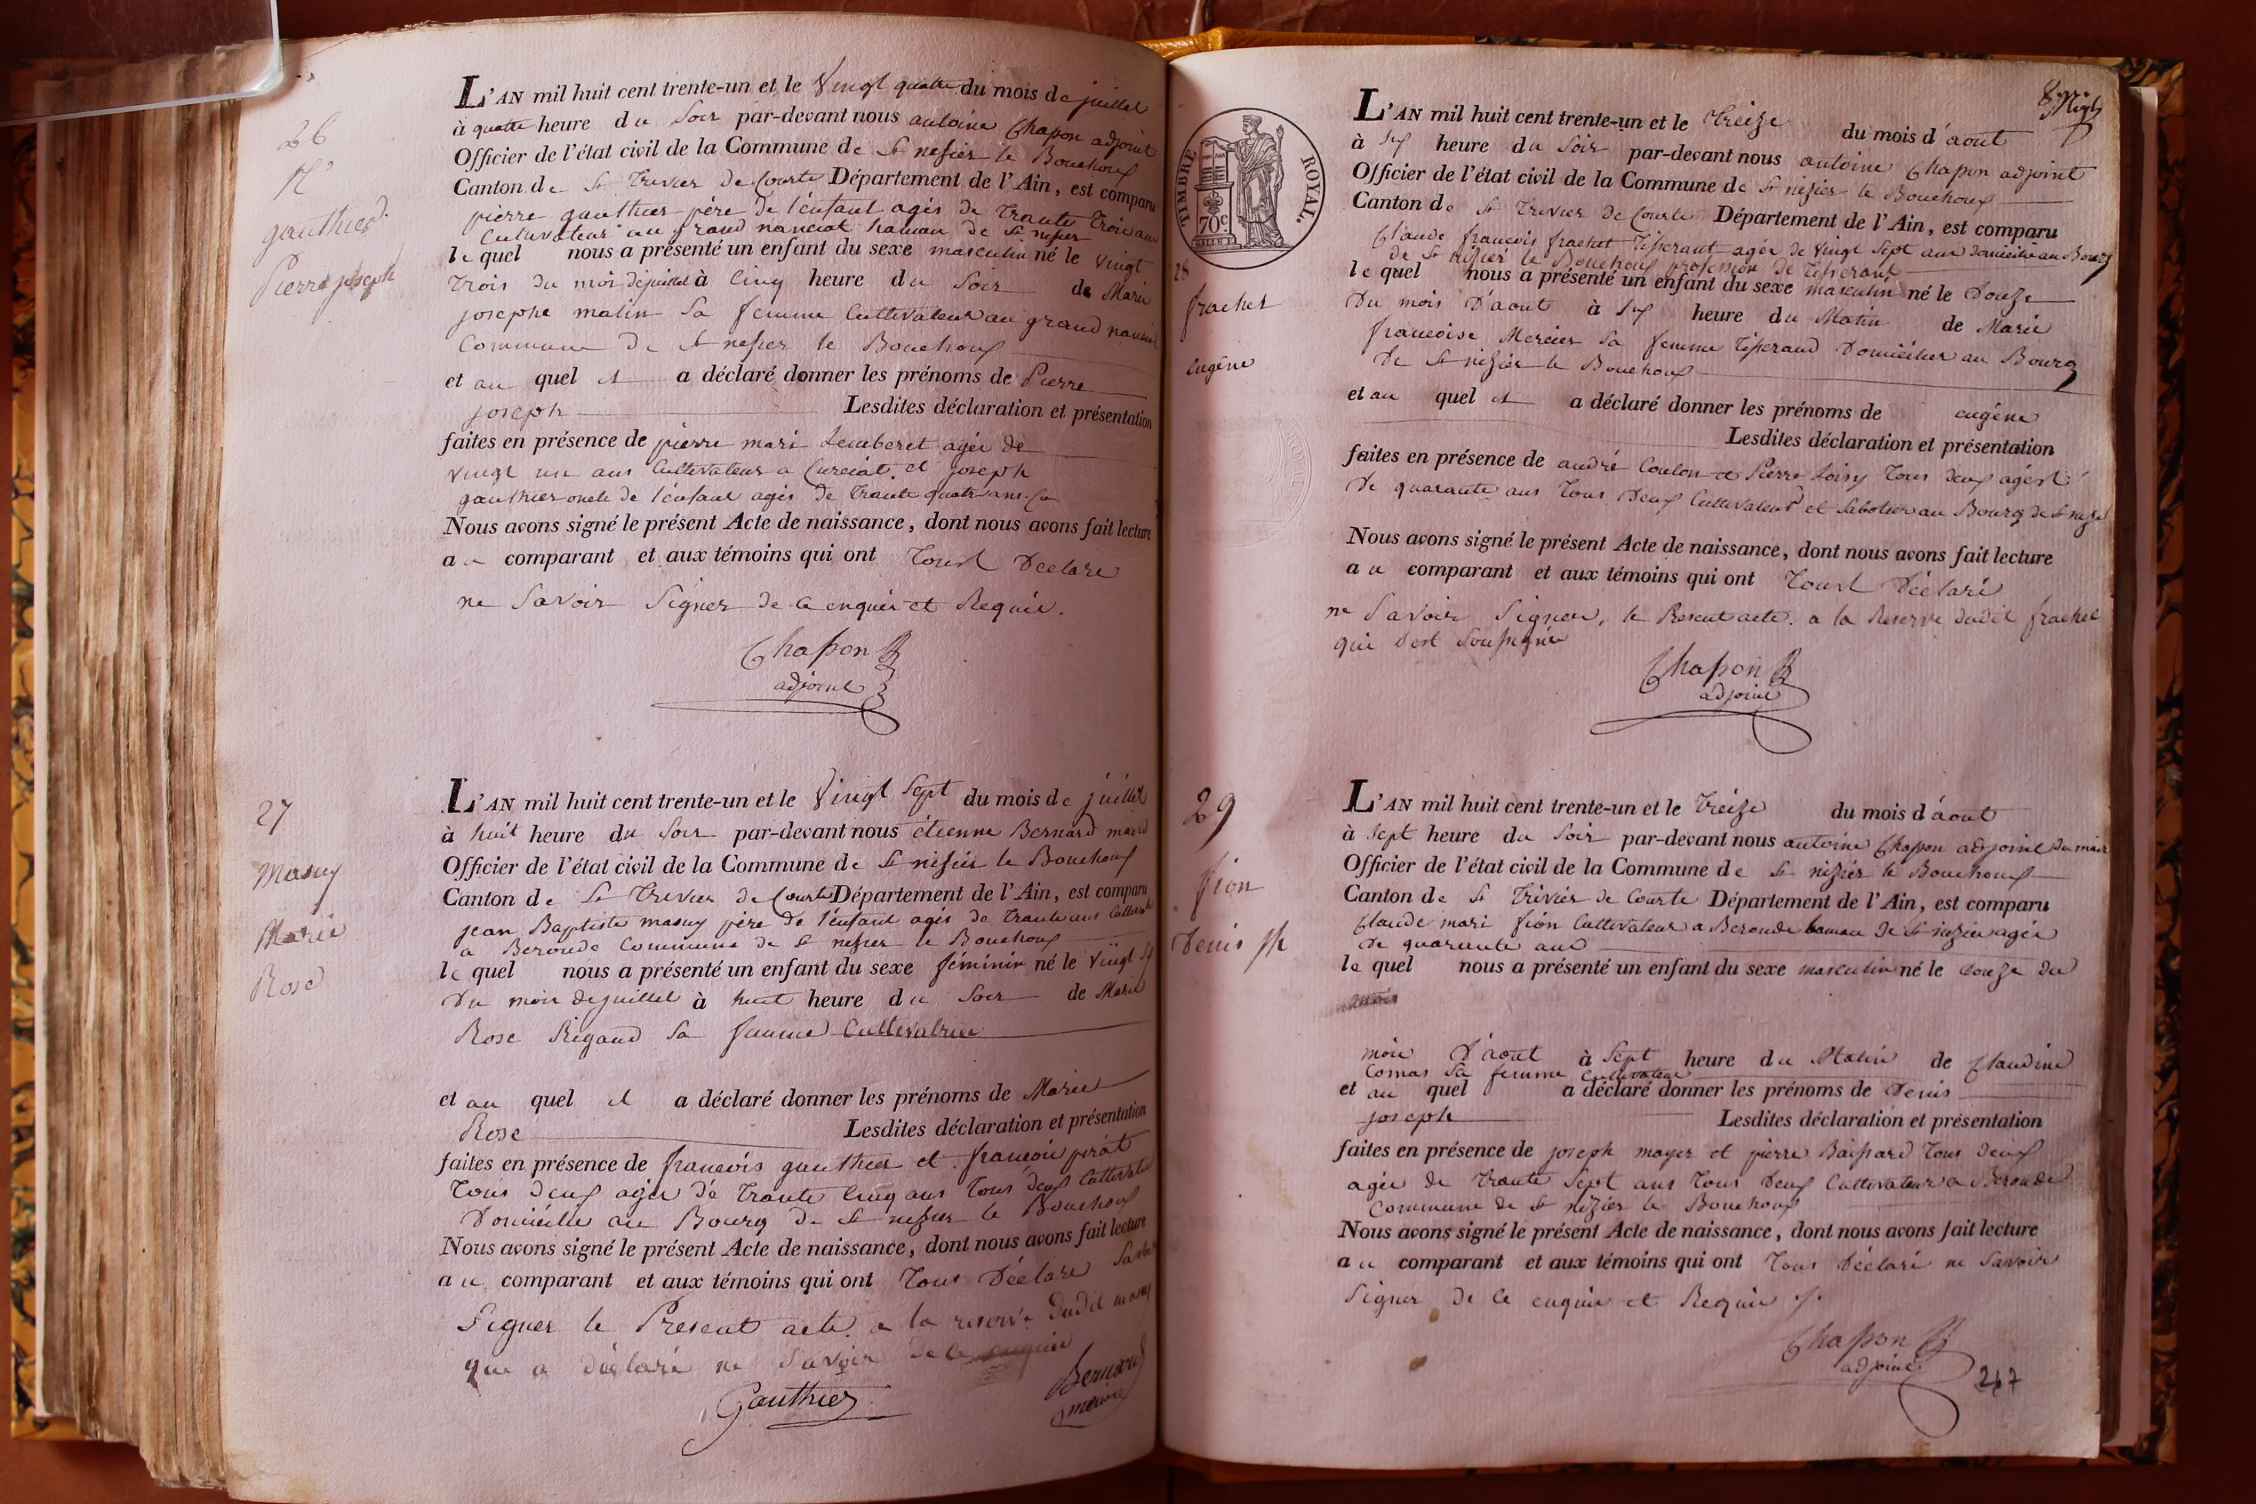 26
gauthier
Pierre joseph
L'AN mil huit cent trente-un et le Vingt quatre du mois de juillet
à quatre heure du Soir par-devant nous antoine Chapon adjoint
Officier de l'état civil de la Commune de St nesier le Bouchoux
Canton de St Trivier de Courte Département de l'Ain, est comparu
pierre gauthier père de l'enfant agés de Trante Trois ans
Cultivateur au grand hamau de St nesier
le quel nous a présenté un enfant du sexe masculin né le vingt
Trois du moi de juillet à Cinq heure du Soir de Marie
josephe malin Sa femme Cultivateur au grand
Commune de St nesier le Bouchoux
et au quel il a déclaré donner les prénoms de Pierre
joseph Lesdites déclaration et présentation
faites en présence de pierre mari agée de
vingt un ans Cultivateur a Curciat et joseph
gauthier oncle de l'enfant agés de Trante quatre ans
Nous avons signé le présent Acte de naissance, dont nous avons fait lecture
au comparant et aux témoins qui ont Tous Déclare
ne Savoir Signer de ce enquis et Requis.
Chapon
adjoint
27
masuy
Marie
Rose
L'AN mil huit cent trente-un et le Vingt Sept du mois de juillet
à huit heure du Soir par-devant nous étienne Bernard maire
Officier de l'état civil de la Commune de St nisier le Bouchoux
Canton de St Trivier de Courte Département de l'Ain, est comparu
jean Baptiste masuy père de l'enfant agés de Trante ans
a Beronde Commune de St nesier le Bouchoux
le quel nous a présenté un enfant du sexe féminin né le vingt
Du moi de juillet à huit heure du Soir de Marie
Rose Rigaud Sa famme Cultivatrice
et au quel il a déclaré donner les prénoms de Marie
Rose Lesdites déclaration et présentation
faites en présence de francois gauthier et francois pirat
Tous deux agée de Trante Cinq ans Tous deux
Domicilie au Bourg de St nesier le Bouchoux
Nous avons signé le présent Acte de naissance, dont nous avons fait lecture
au comparant et aux témoins qui ont Tous Déclare
Signer le Present acte a la reserve dudit
que a déclaré ne Savoir
Gauthier
Bernard
maire
TIMBRE ROYAL.
70c
28
frachet
eugène
L'AN mil huit cent trente-un et le Treize du mois d'aout
à Six heure du Soir par-devant nous antoine Chapon adjoint
Officier de l'état civil de la Commune de St nisier le Bouchoux
Canton de St Trivier de Courte Département de l'Ain, est comparu
Claude francois frachet Tisserant agée de vingt Sept ans domicilié au Bourg
de St nisier le Bouchoux profession de Tisserant
le quel nous a présenté un enfant du sexe masculin né le Douze
Du mois D'aout à Six heure du Matin de Marie
francoise Mercier Sa femme Tisserand Domicilier au Bourg
De St nisier le Bouchoux
et au quel il a déclaré donner les prénoms de eugéne
Lesdites déclaration et présentation
faites en présence de andré Coulon et Pierre Loisy Tous deux agés
De quarante ans Tous Deux Cultivateur et Sabotier au Bourg de St
Nous avons signé le présent Acte de naissance, dont nous avons fait lecture
au comparant et aux témoins qui ont Tous Déclaré
ne Savoir Signer, le Present acte. a la Reserve dudit frachet
qui S'est Soussigné
Chapon
adjoint
29
fion
Denis jh
L'AN mil huit cent trente-un et le Treize du mois d'aout
à Sept heure du Soir par-devant nous antoine Chapon adjoint
Officier de l'état civil de la Commune de St nisier le Bouchoux
Canton de St Trivier de Courte Département de l'Ain, est comparu
Claude mari fion Cultivateur a Beronde hamau de St nizier agée
De quarante ans
le quel nous a présenté un enfant du sexe masculin né le douze du
mois D'aout à Sept heure du Matin de Claudine
Comas Sa femme Cultivateur
et au quel a déclaré donner les prénoms de Denis
joseph Lesdites déclaration et présentation
faites en présence de joseph mayer et pierre Baissard Tous deux
agée de Trante Sept ans Tous Deux Cultivateur a Beronde
Commune de St nizier le Bouchoux
Nous avons signé le présent Acte de naissance, dont nous avons fait lecture
au comparant et aux témoins qui ont Tous Déclaré ne Savoir
Signer de ce enquis et Requis
Chapon
adjoint
247